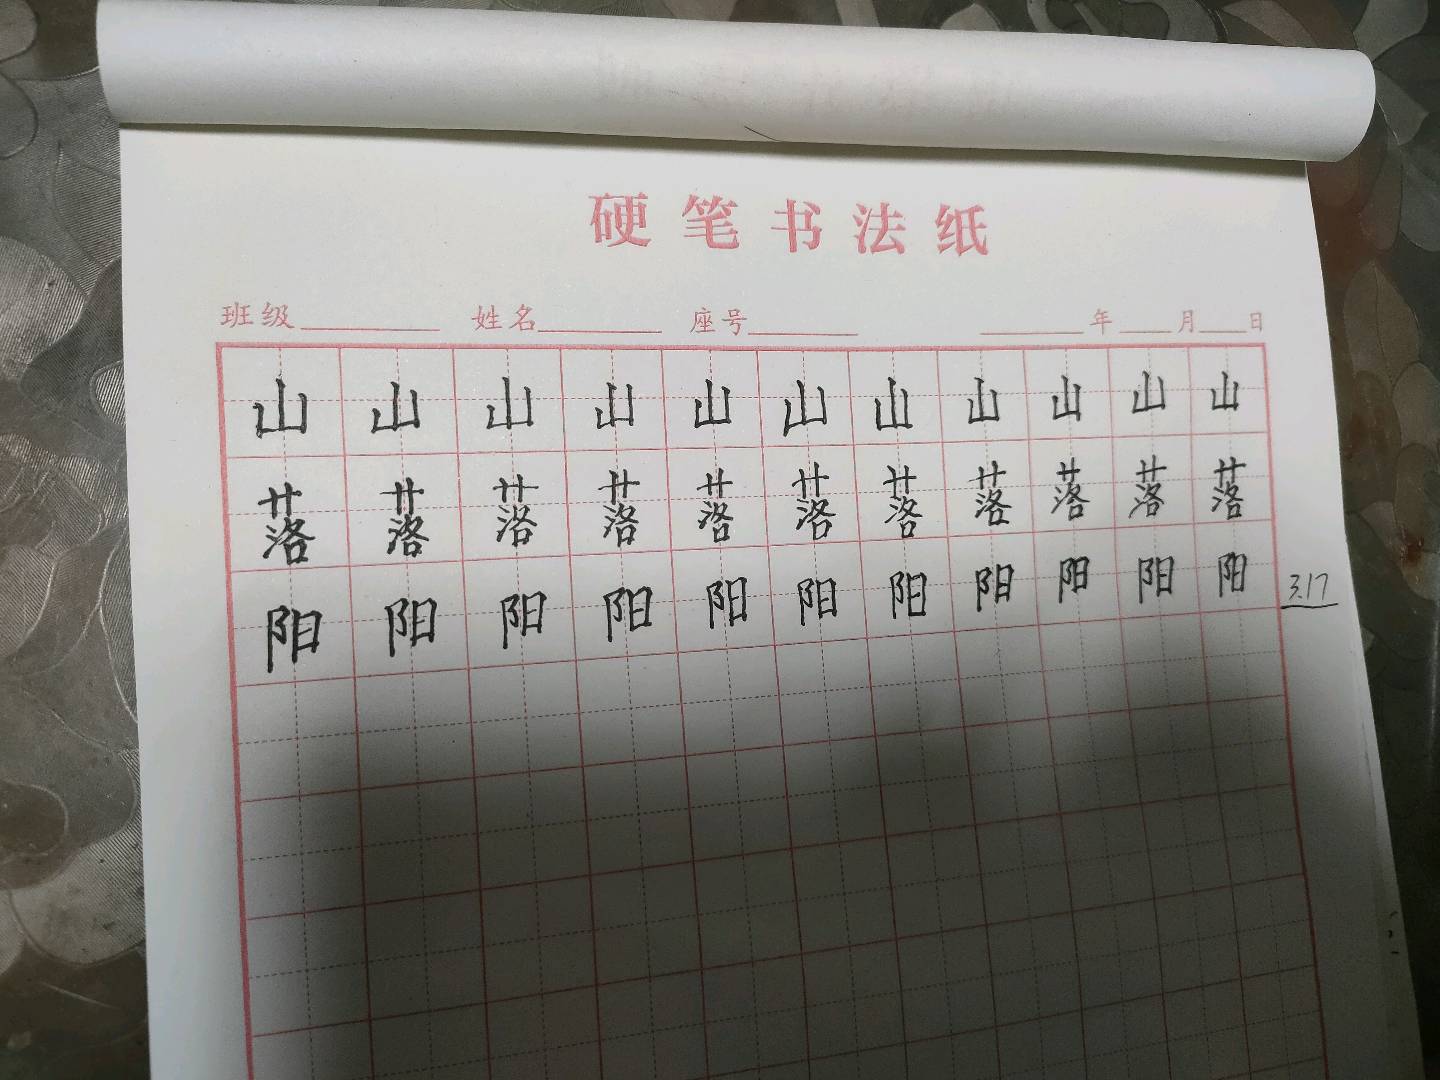 硬笔书法纸
班级 姓名 座号 年 月 日
山 山 山 山 山 山 山 山 山 山 山
落 落 落 落 落 落 落 落 落 落 落
阳 阳 阳 阳 阳 阳 阳 阳 阳 阳 阳
3.17